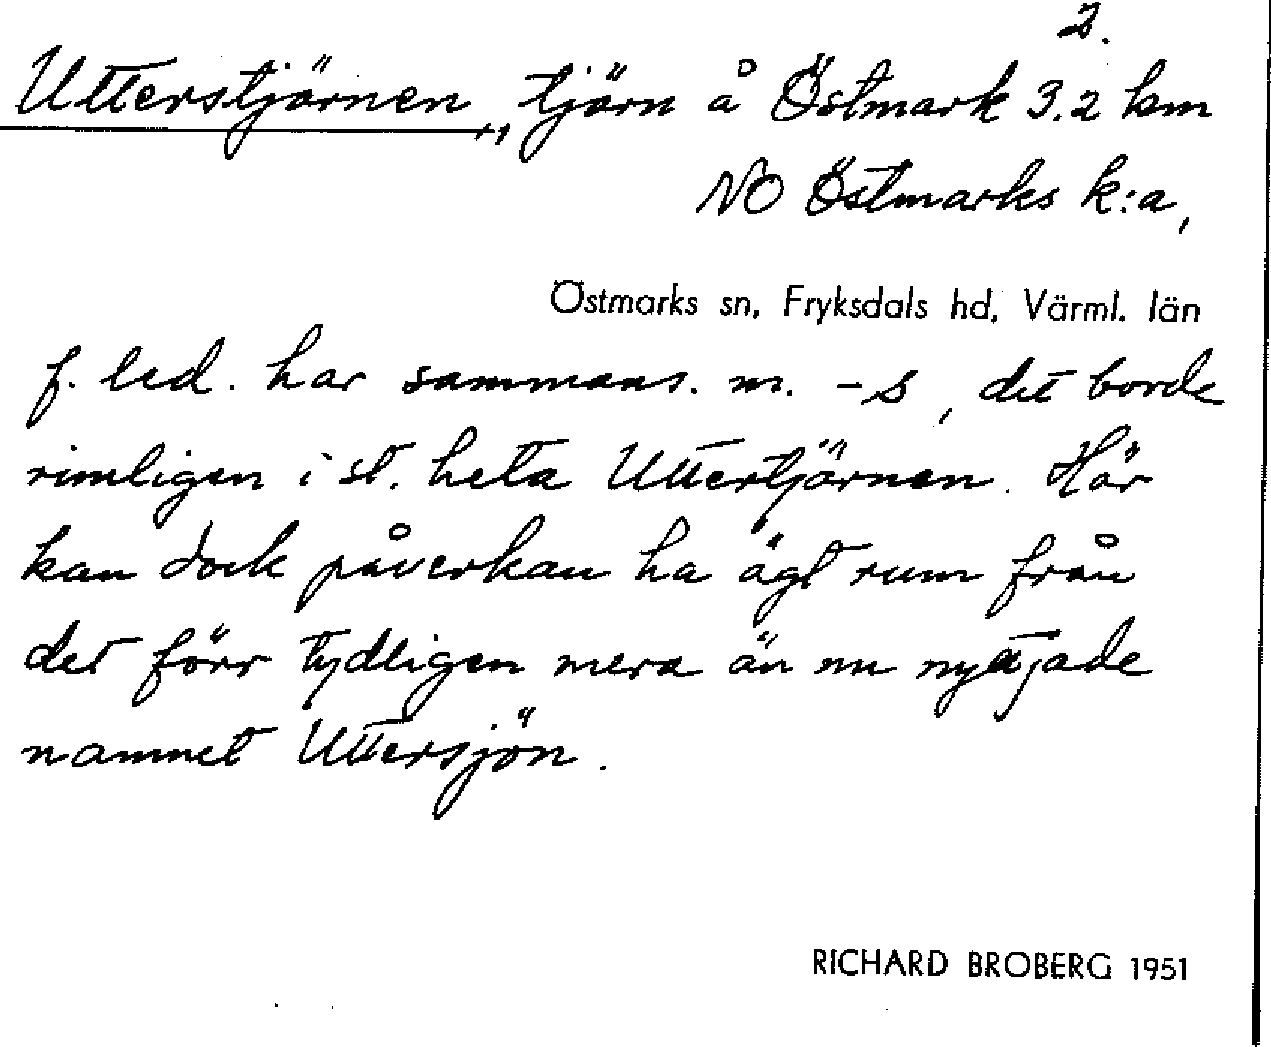 2.
Utterstjärnen, tjärn å Östmark 3.2 km
NO Östmarks k:a,
Östmarks sn, Fryksdals hd, Värml. län
f. led. har sammans. m. -s, det borde
rimligen i st. heta Uttertjärnen. Här
kan dock påverkan ha ägt rum från
det förr tydligen mera än nu nyttjade
namnet Uttersjön.
RICHARD BROBERG 1951